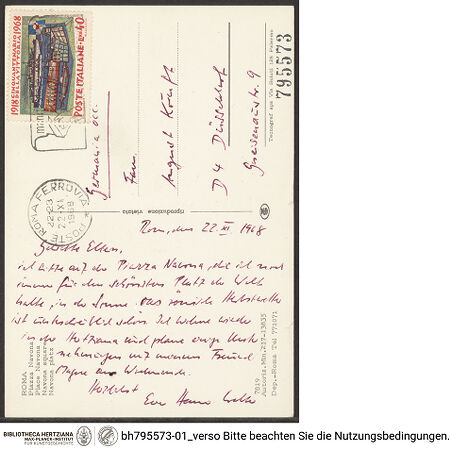 1918 CINQUANTENARIO 1968
DELLA VITTORIA
POSTE ITALIANE L. 40
Germania occ.
Fam.
August Krupft
D 4 Düsseldorf
Gneisenaustr. 9
795573
riproduzione vietata
POSTE ROMA FERROVIA
22-23
22.XI
1968
Rom, den 22 XI 1968
Geliebte Eltern,
ich sitze auf der Piazza Navona, die ich noch
immer für den schönsten Platz der Welt
halte, in der Sonne. Das römische Herbstwetter
ist unbeschreiblich schön. Ich wohne wieder
in der Hertziana und plane einige Unter
nehmungen mit meinem Freund
am Wochenende.
Herzlichst
Euer Hanno
ROMA
Piazza Navona
Place Navona
Navona square
Navona platz
7819
Autoriz. Min. 227-13835
Dep.-Roma Tel 771071
BIBLIOTHECA HERTZIANA
MAX-PLANCK-INSTITUT
FÜR KUNSTGESCHICHTE
bh795573-01_verso Bitte beachten Sie die Nutzungsbedingungen.